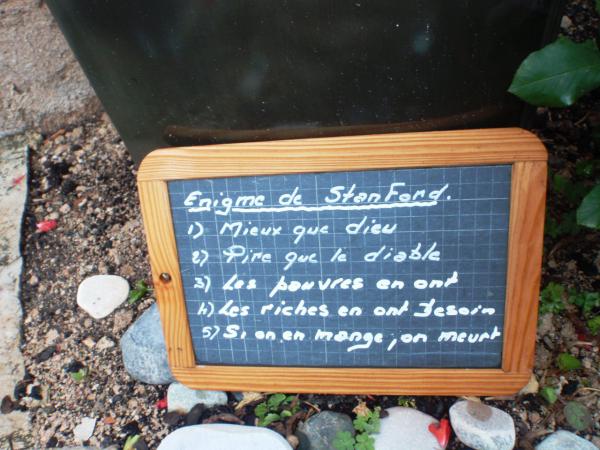 Enigme de Stanford.
1) Mieux que dieu
2) Pire que le diable
3) Les pauvres en ont
4) Les riches en ont Besoin
5) Si on en mange, on meurt